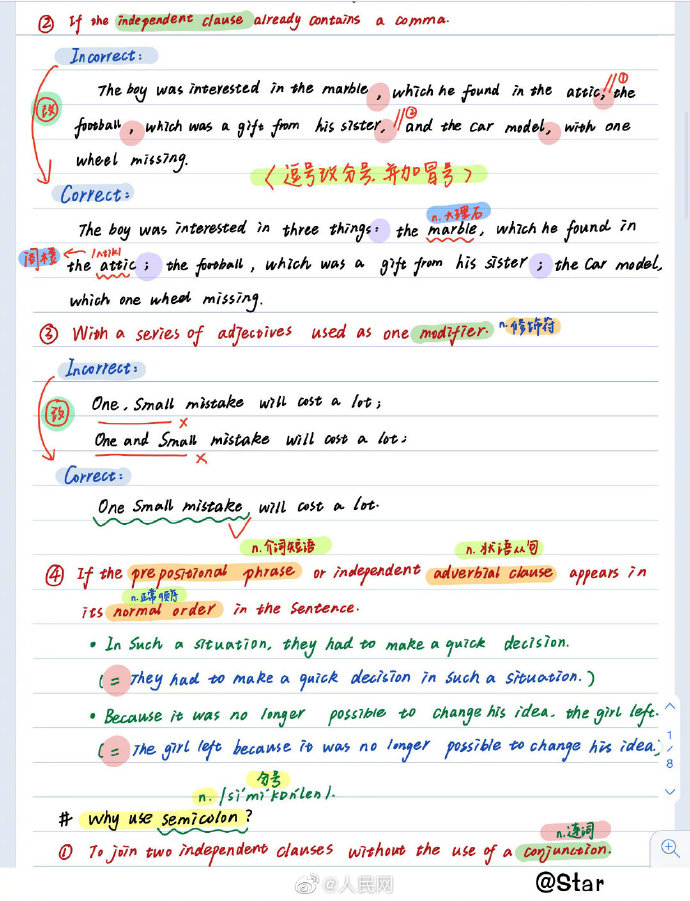 ② If the independent clause already contains a comma.
Incorrect:
The boy was interested in the marble, which he found in the attic, the
①
改
football, which was a gift from his sister, and the car model, with one
②
wheel missing.
〈逗号改分号.并加冒号〉
Correct:
n.大理石
The boy was interested in three things: the marble, which he found in
阁楼
the attic; the football, which was a gift from his sister; the car model,
which one wheel missing.
③ With a series of adjectives used as one modifier. n.修饰符
Incorrect:
改
One, Small mistake will cost a lot;
One and Small mistake will cost a lot;
Correct:
One Small mistake will cost a lot.
n.介词短语 n.状语从句
④ If the prepositional phrase or independent adverbial clause appears in
n.正常顺序
its normal order in the sentence.
• In Such a situation, they had to make a quick decision.
(= They had to make a quick decision in such a situation.)
• Because it was no longer possible to change his idea, the girl left.
(= The girl left because it was no longer possible to change his idea.)
分号
n. /si'mi'kɒnlen/.
# why use semicolon?
n.连词
① To join two independent clauses without the use of a conjunction.
1
/
8
@人民网
@Star